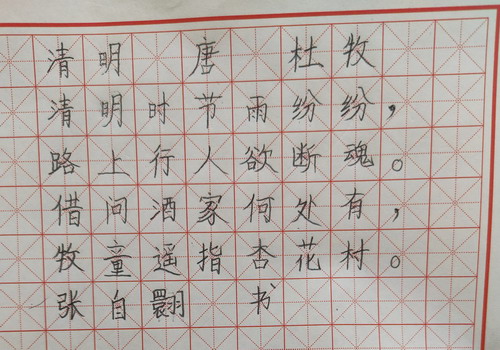 清明 唐 杜牧
清明时节雨纷纷，
路上行人欲断魂。
借问酒家何处有，
牧童遥指杏花村。
张自翾 书